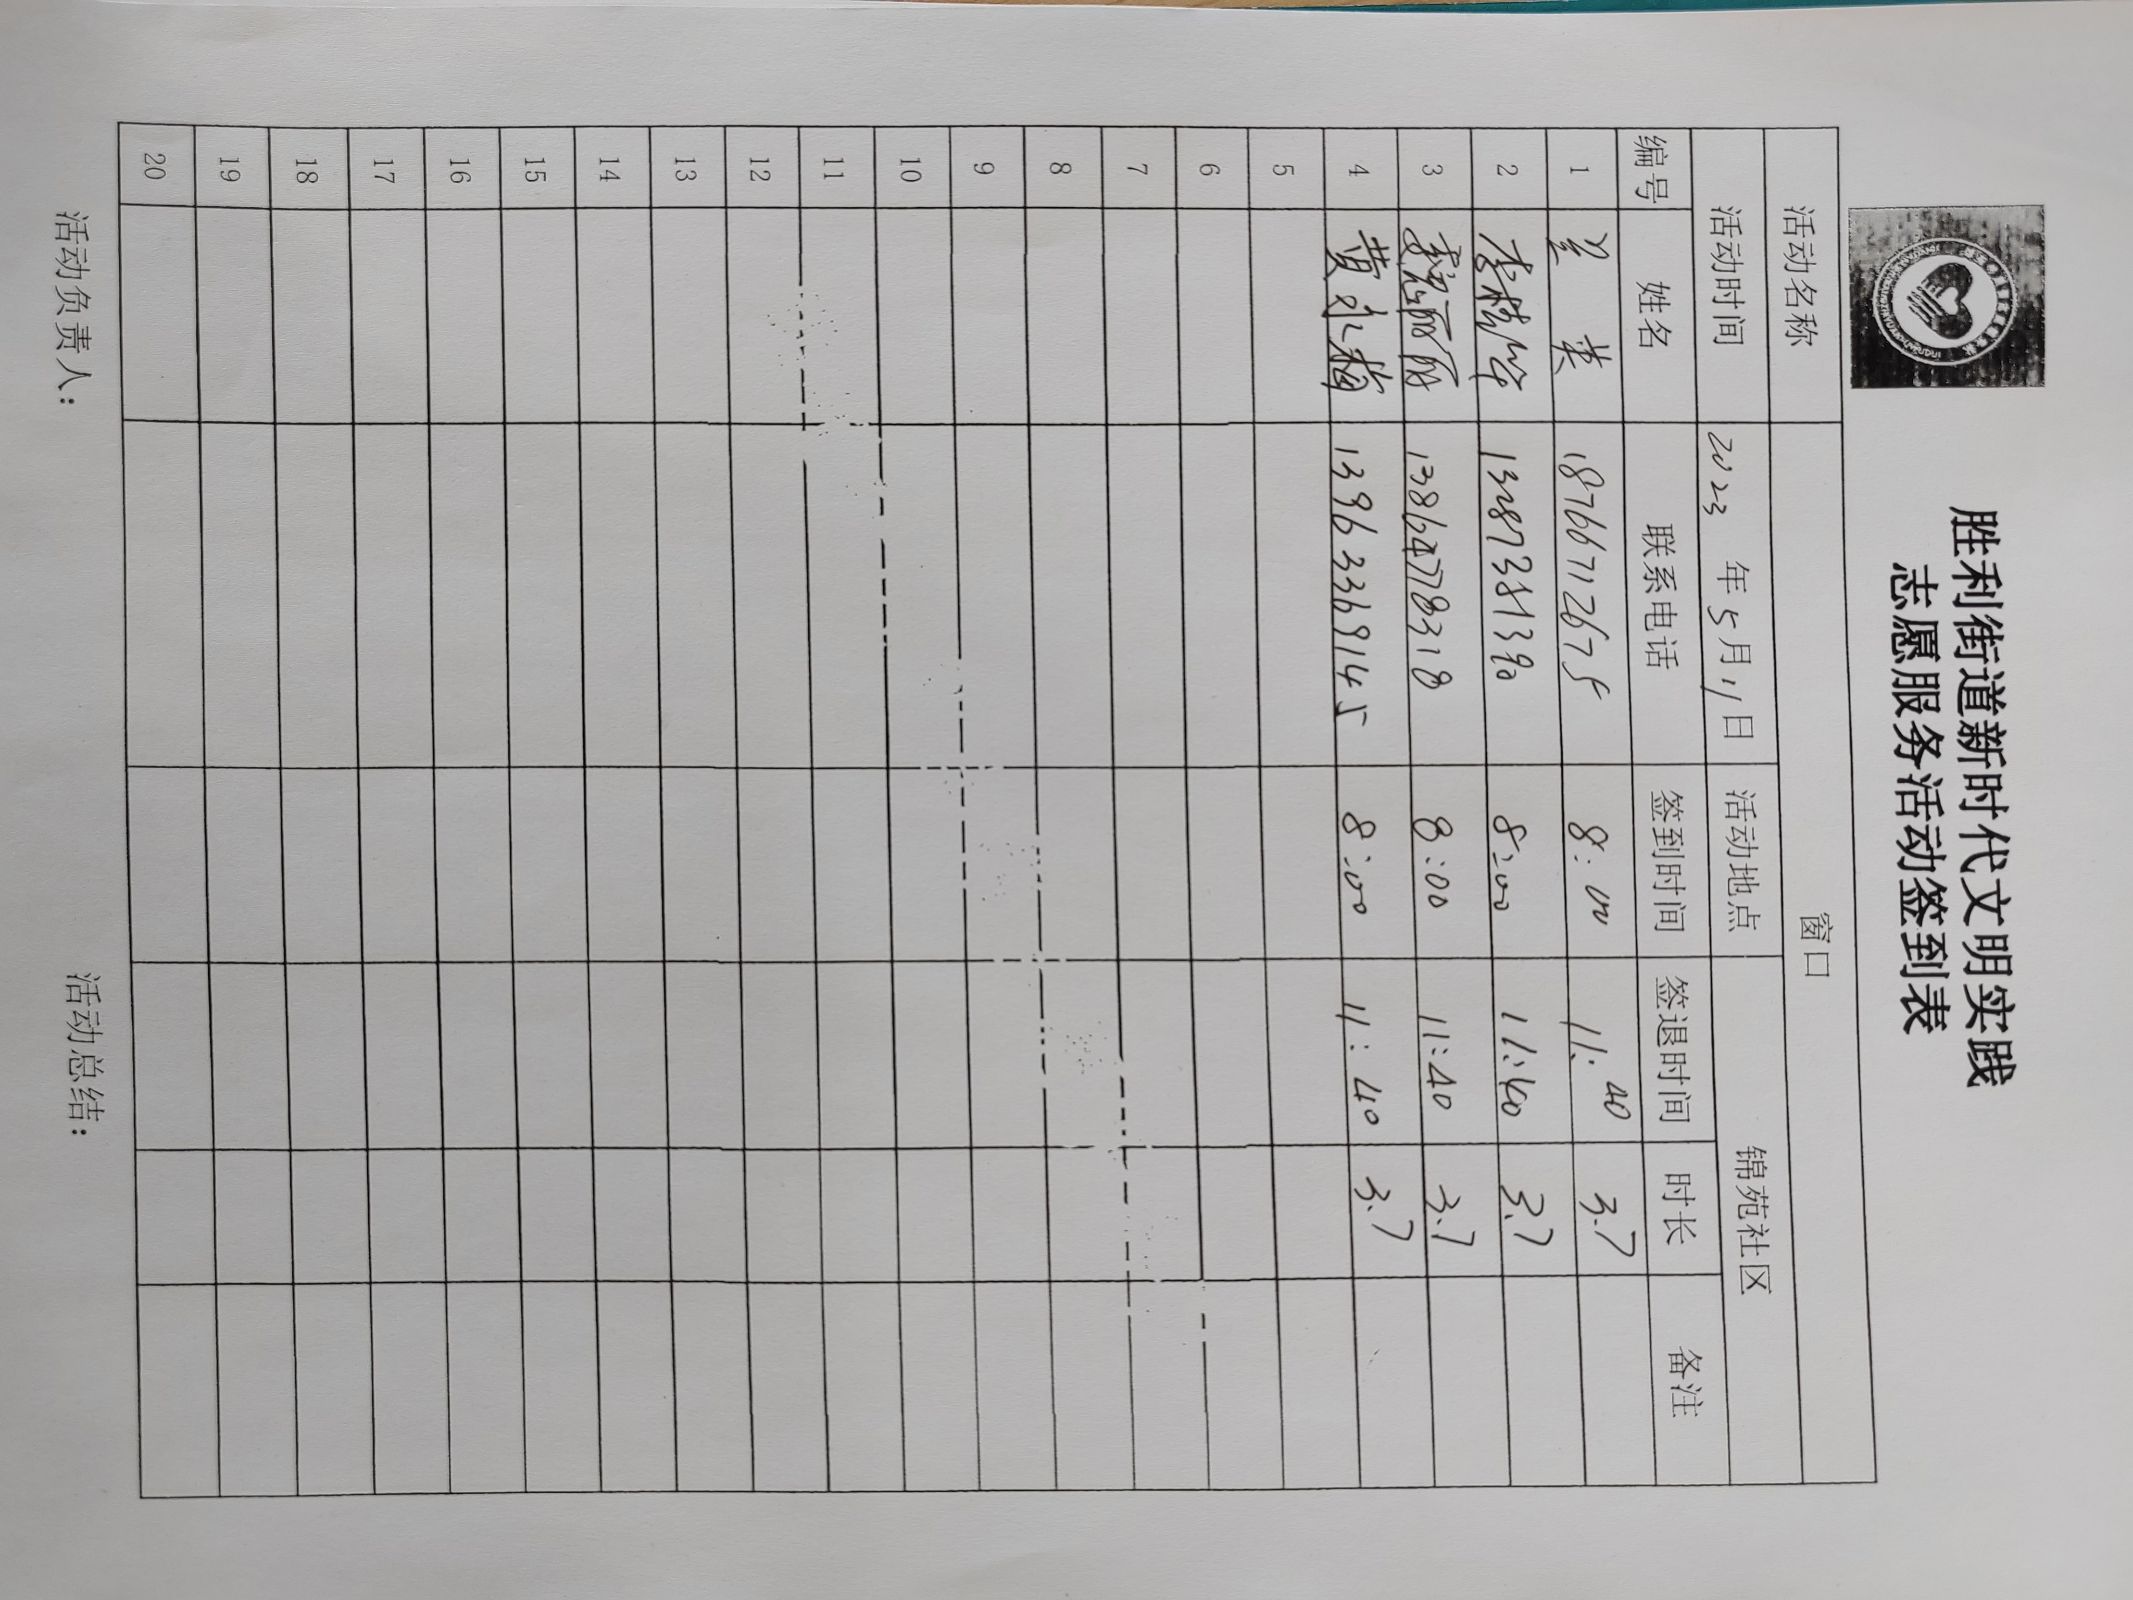 胜利街道新时代文明实践
志愿服务活动签到表
活动名称 窗口
活动时间 2023 年 5 月 11 日 活动地点 锦苑社区
编号 姓名 联系电话 签到时间 签退时间 时长 备注
1 英 18766712675 8:00 11:40 3.7
2 李 13287381390 8:00 11:40 3.7
3 魏丽丽 13864778318 8:00 11:40 3.7
4 黄永梅 13963369145 8:00 11:40 3.7
5
6
7
8
9
10
11
12
13
14
15
16
17
18
19
20
活动负责人： 活动总结：